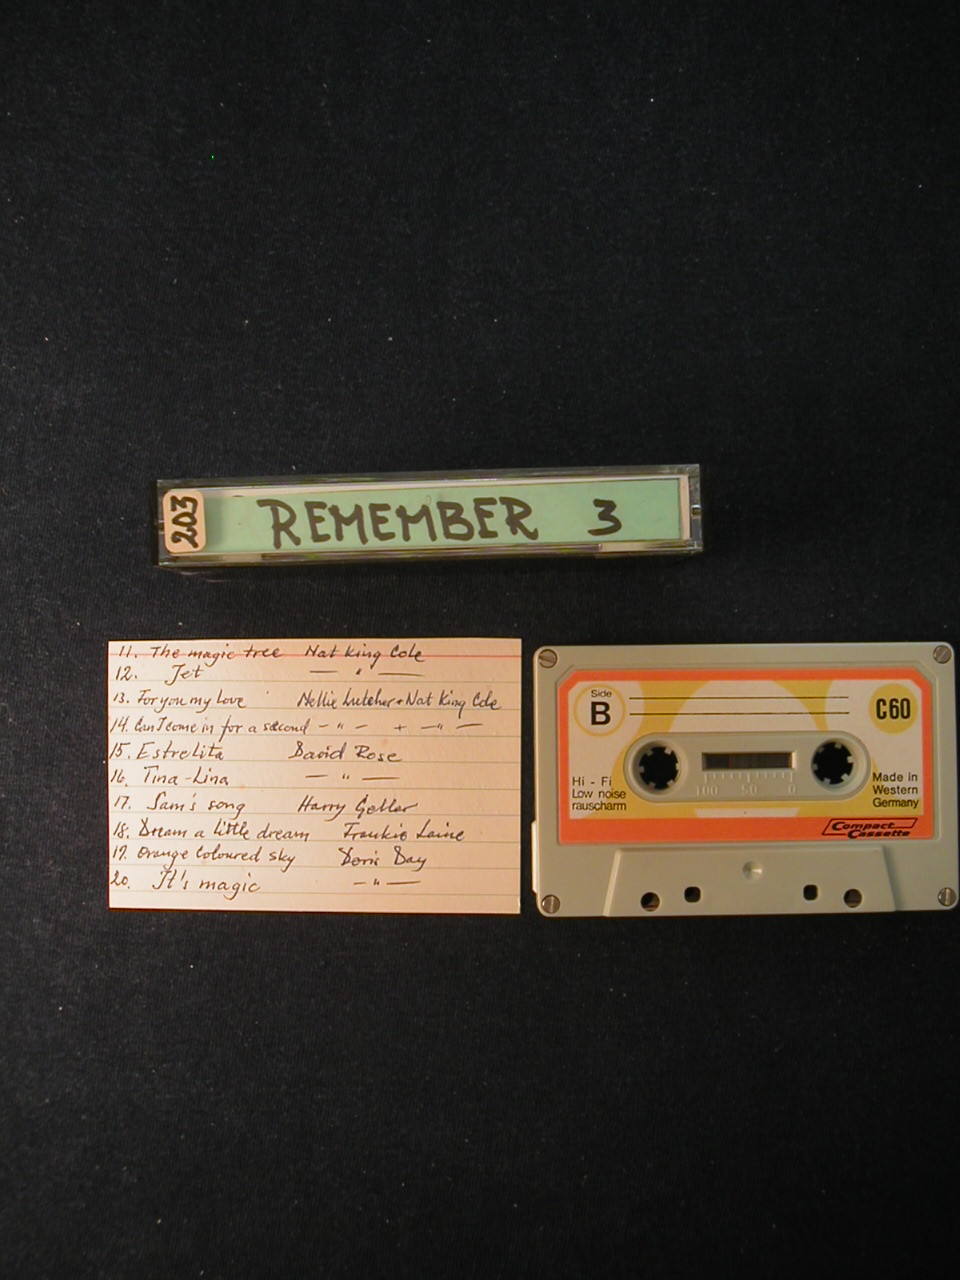 203
REMEMBER 3
11. The magic tree Nat King Cole
12. Jet — " —
13. For you my love Nellie Lutcher + Nat King Cole
14. Can I come in for a second — " — + — " —
15. Estrelita David Rose
16. Tina-Lina — " —
17. Sam's song Harry Geller
18. Dream a little dream Frankie Laine
19. Orange Coloured sky Doris Day
20. It's magic — " —
Side
B
C60
Hi - Fi
Low noise
rauscharm
100 50 0
Made in
Western
Germany
Compact
Cassette